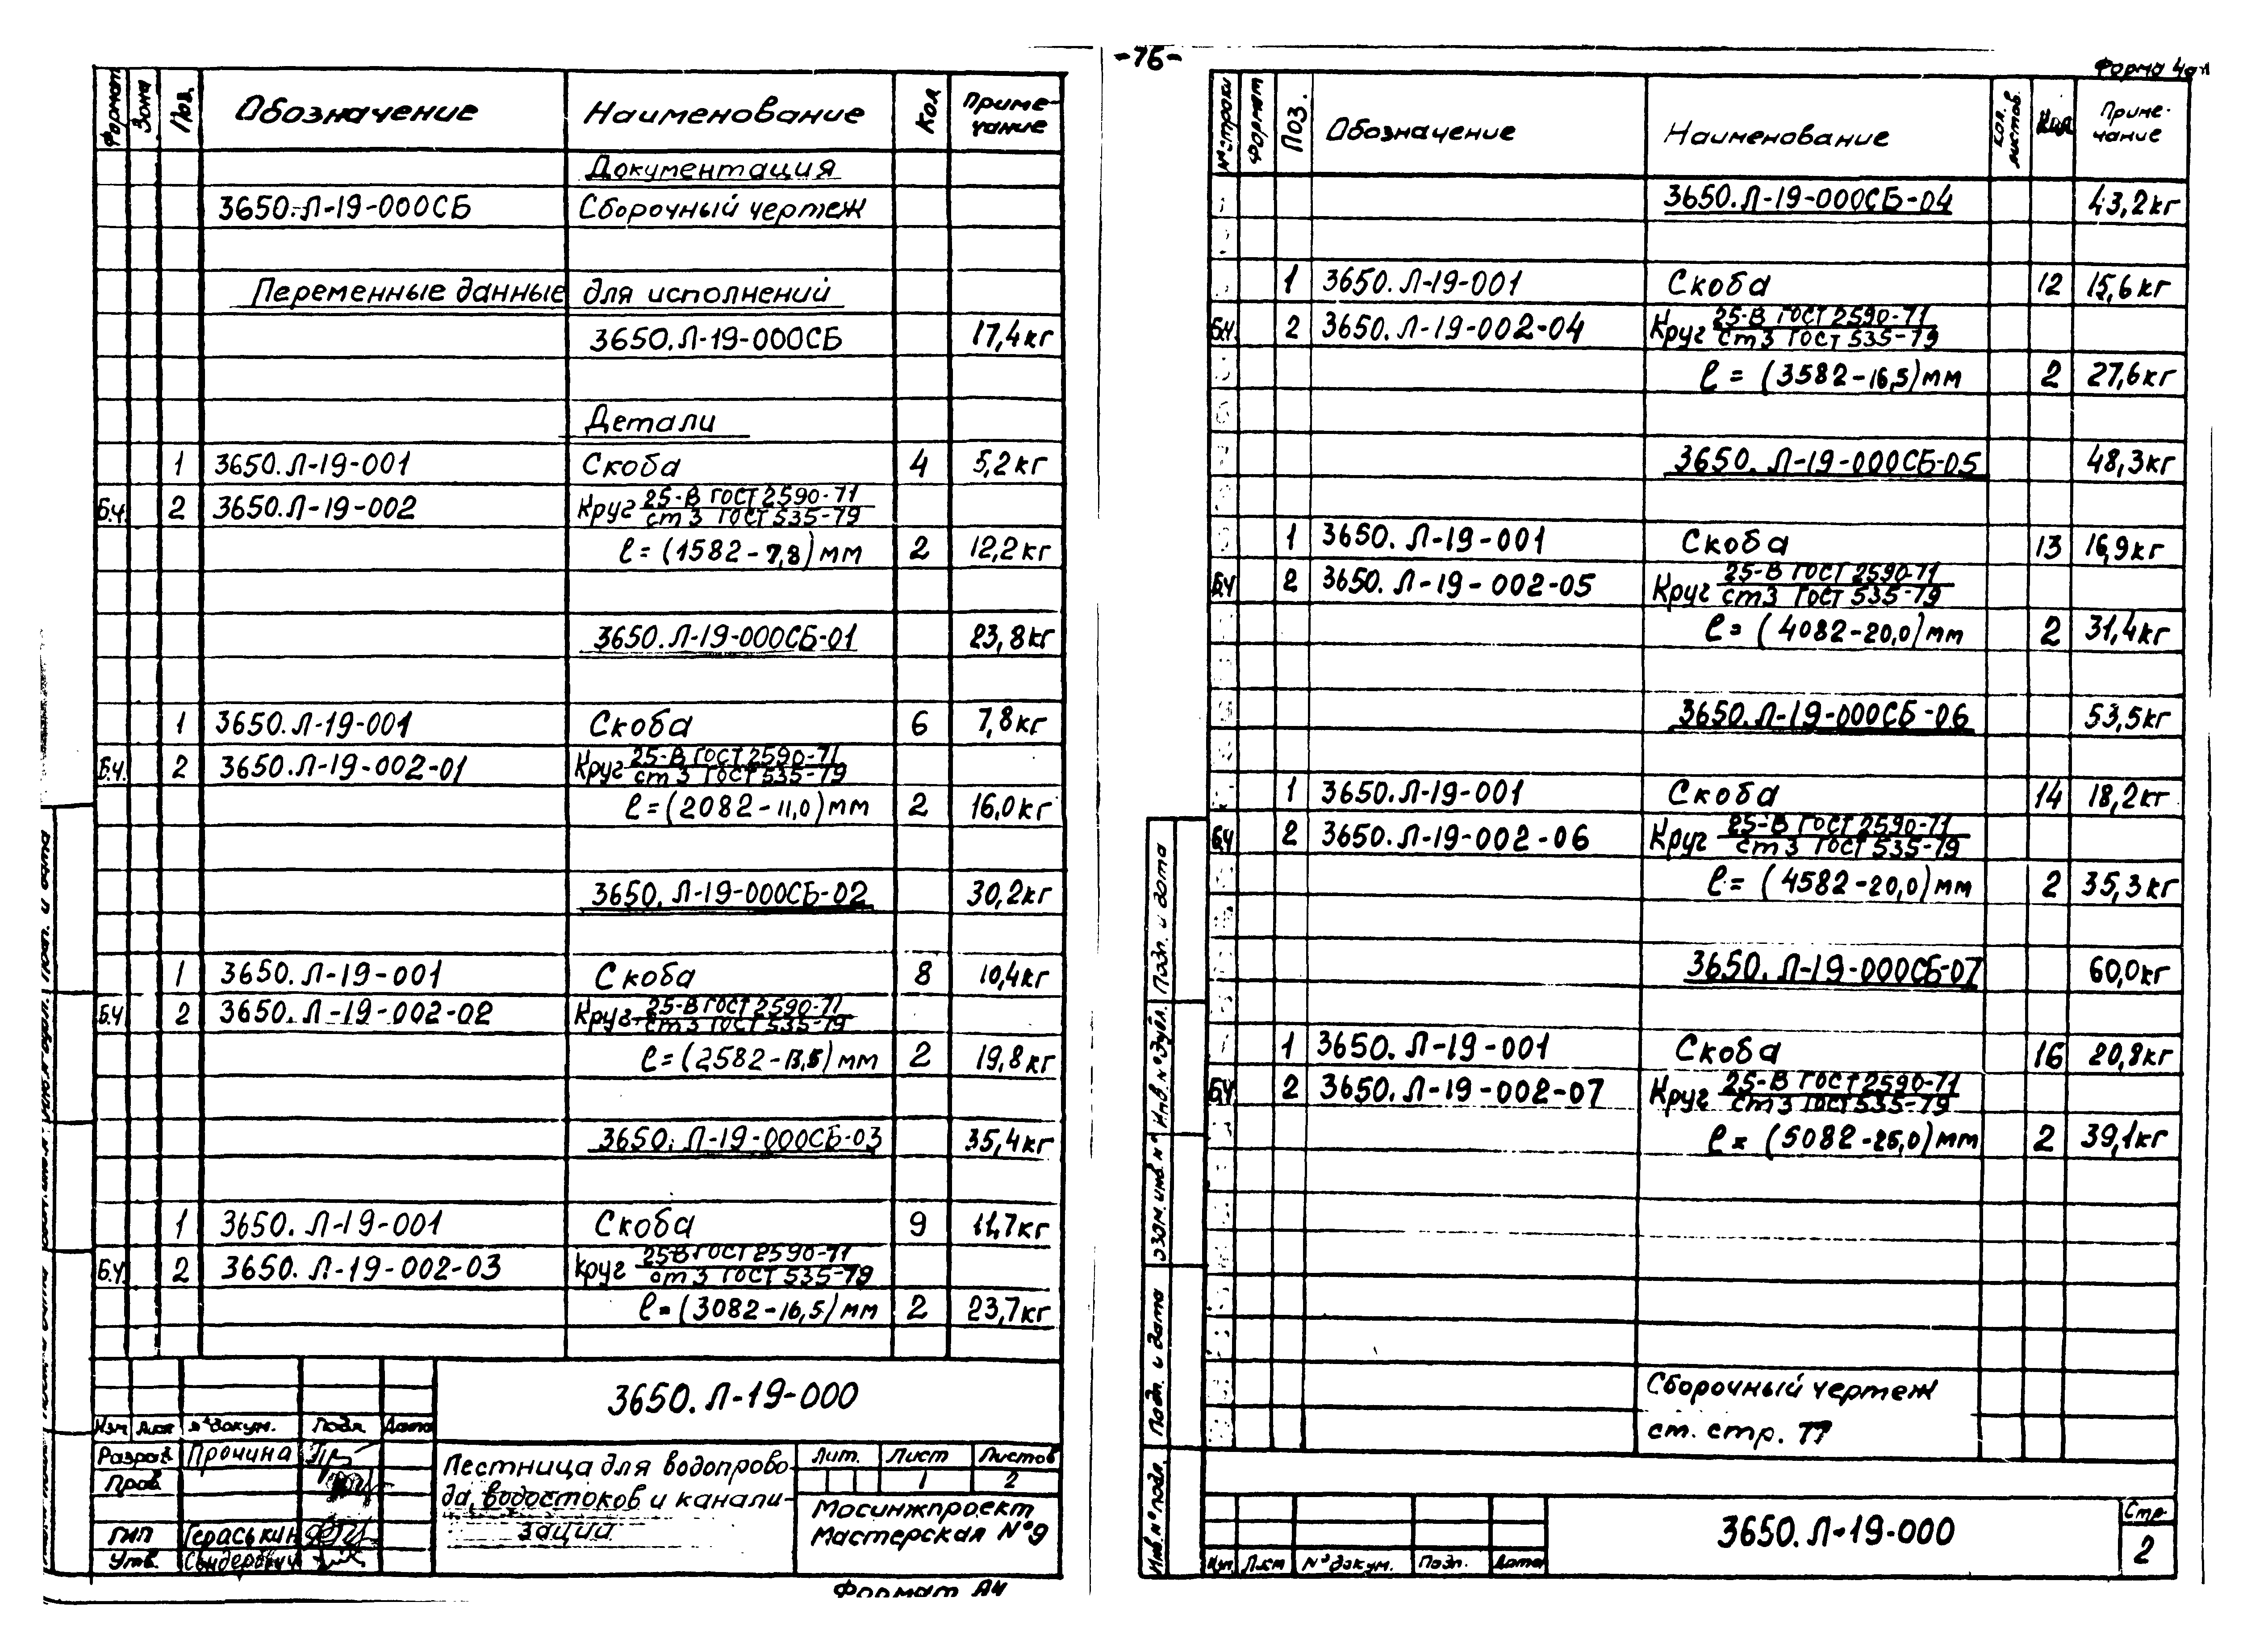 -76-
Формат Зона Поз. Обозначение Наименование Кол Приме-
чание
Документация
3650.Л-19-000СБ Сборочный чертеж
Переменные данные для исполнений
3650.Л-19-000СБ 17,4кг
Детали
1 3650.Л-19-001 Скоба 4 5,2кг
Б.ч. 2 3650.Л-19-002 Круг 25-В ГОСТ 2590-71
ст 3 ГОСТ 535-79
ℓ=(1582-7,8)мм 2 12,2кг
3650.Л-19-000СБ-01 23,8кг
1 3650.Л-19-001 Скоба 6 7,8кг
Б.ч. 2 3650.Л-19-002-01 Круг 25-В ГОСТ 2590-71
ст 3 ГОСТ 535-79
ℓ=(2082-11,0)мм 2 16,0кг
3650.Л-19-000СБ-02 30,2кг
1 3650.Л-19-001 Скоба 8 10,4кг
Б.ч 2 3650.Л-19-002-02 Круг 25-В ГОСТ 2590-71
ст 3 ГОСТ 535-79
ℓ=(2582-13,5)мм 2 19,8кг
3650.Л-19-000СБ-03 35,4кг
1 3650.Л-19-001 Скоба 9 11,7кг
Б.ч. 2 3650.Л-19-002-03 Круг 25-В ГОСТ 2590-71
ст 3 ГОСТ 535-79
ℓ=(3082-16,5)мм 2 23,7кг
3650.Л-19-000
Изм Лист № докум. Подп. Дата
Разраб. Прочина
Пров.
ГИП Гераськин
Утв.
Лестница для водопрово-
да, водостоков и канали-
зации
Лит. Лист Листов
1 2
Мосинжпроект
Мастерская №9
Формат А4
Форма 4а
№ строки Формат Поз. Обозначение Наименование Кол. листов. Кол Приме-
чание
3650.Л-19-000СБ-04 43,2кг
1 3650.Л-19-001 Скоба 12 15,6кг
Б.ч. 2 3650.Л-19-002-04 Круг 25-В ГОСТ 2590-71
ст 3 ГОСТ 535-79
ℓ=(3582-16,5)мм 2 27,6кг
3650.Л-19-000СБ-05 48,3кг
1 3650.Л-19-001 Скоба 13 16,9кг
Б.ч 2 3650.Л-19-002-05 Круг 25-В ГОСТ 2590-71
ст 3 ГОСТ 535-79
ℓ=(4082-20,0)мм 2 31,4кг
3650.Л-19-000СБ-06 53,5кг
1 3650.Л-19-001 Скоба 14 18,2кг
Б.ч 2 3650.Л-19-002-06 Круг 25-В ГОСТ 2590-71
ст 3 ГОСТ 535-79
ℓ=(4582-20,0)мм 2 35,3кг
3650.Л-19-000СБ-07 60,0кг
1 3650.Л-19-001 Скоба 16 20,8кг
Б.ч. 2 3650.Л-19-002-07 Круг 25-В ГОСТ 2590-71
ст 3 ГОСТ 535-79
ℓ=(5082-25,0)мм 2 39,1кг
Сборочный чертеж
ст. стр. 77
Инв. № подл. Подп. и дата Взам. инв. № Инв. № дубл. Подп. и дата
Изм Лист № докум. Подп. Дата
3650.Л-19-000
Стр.
2